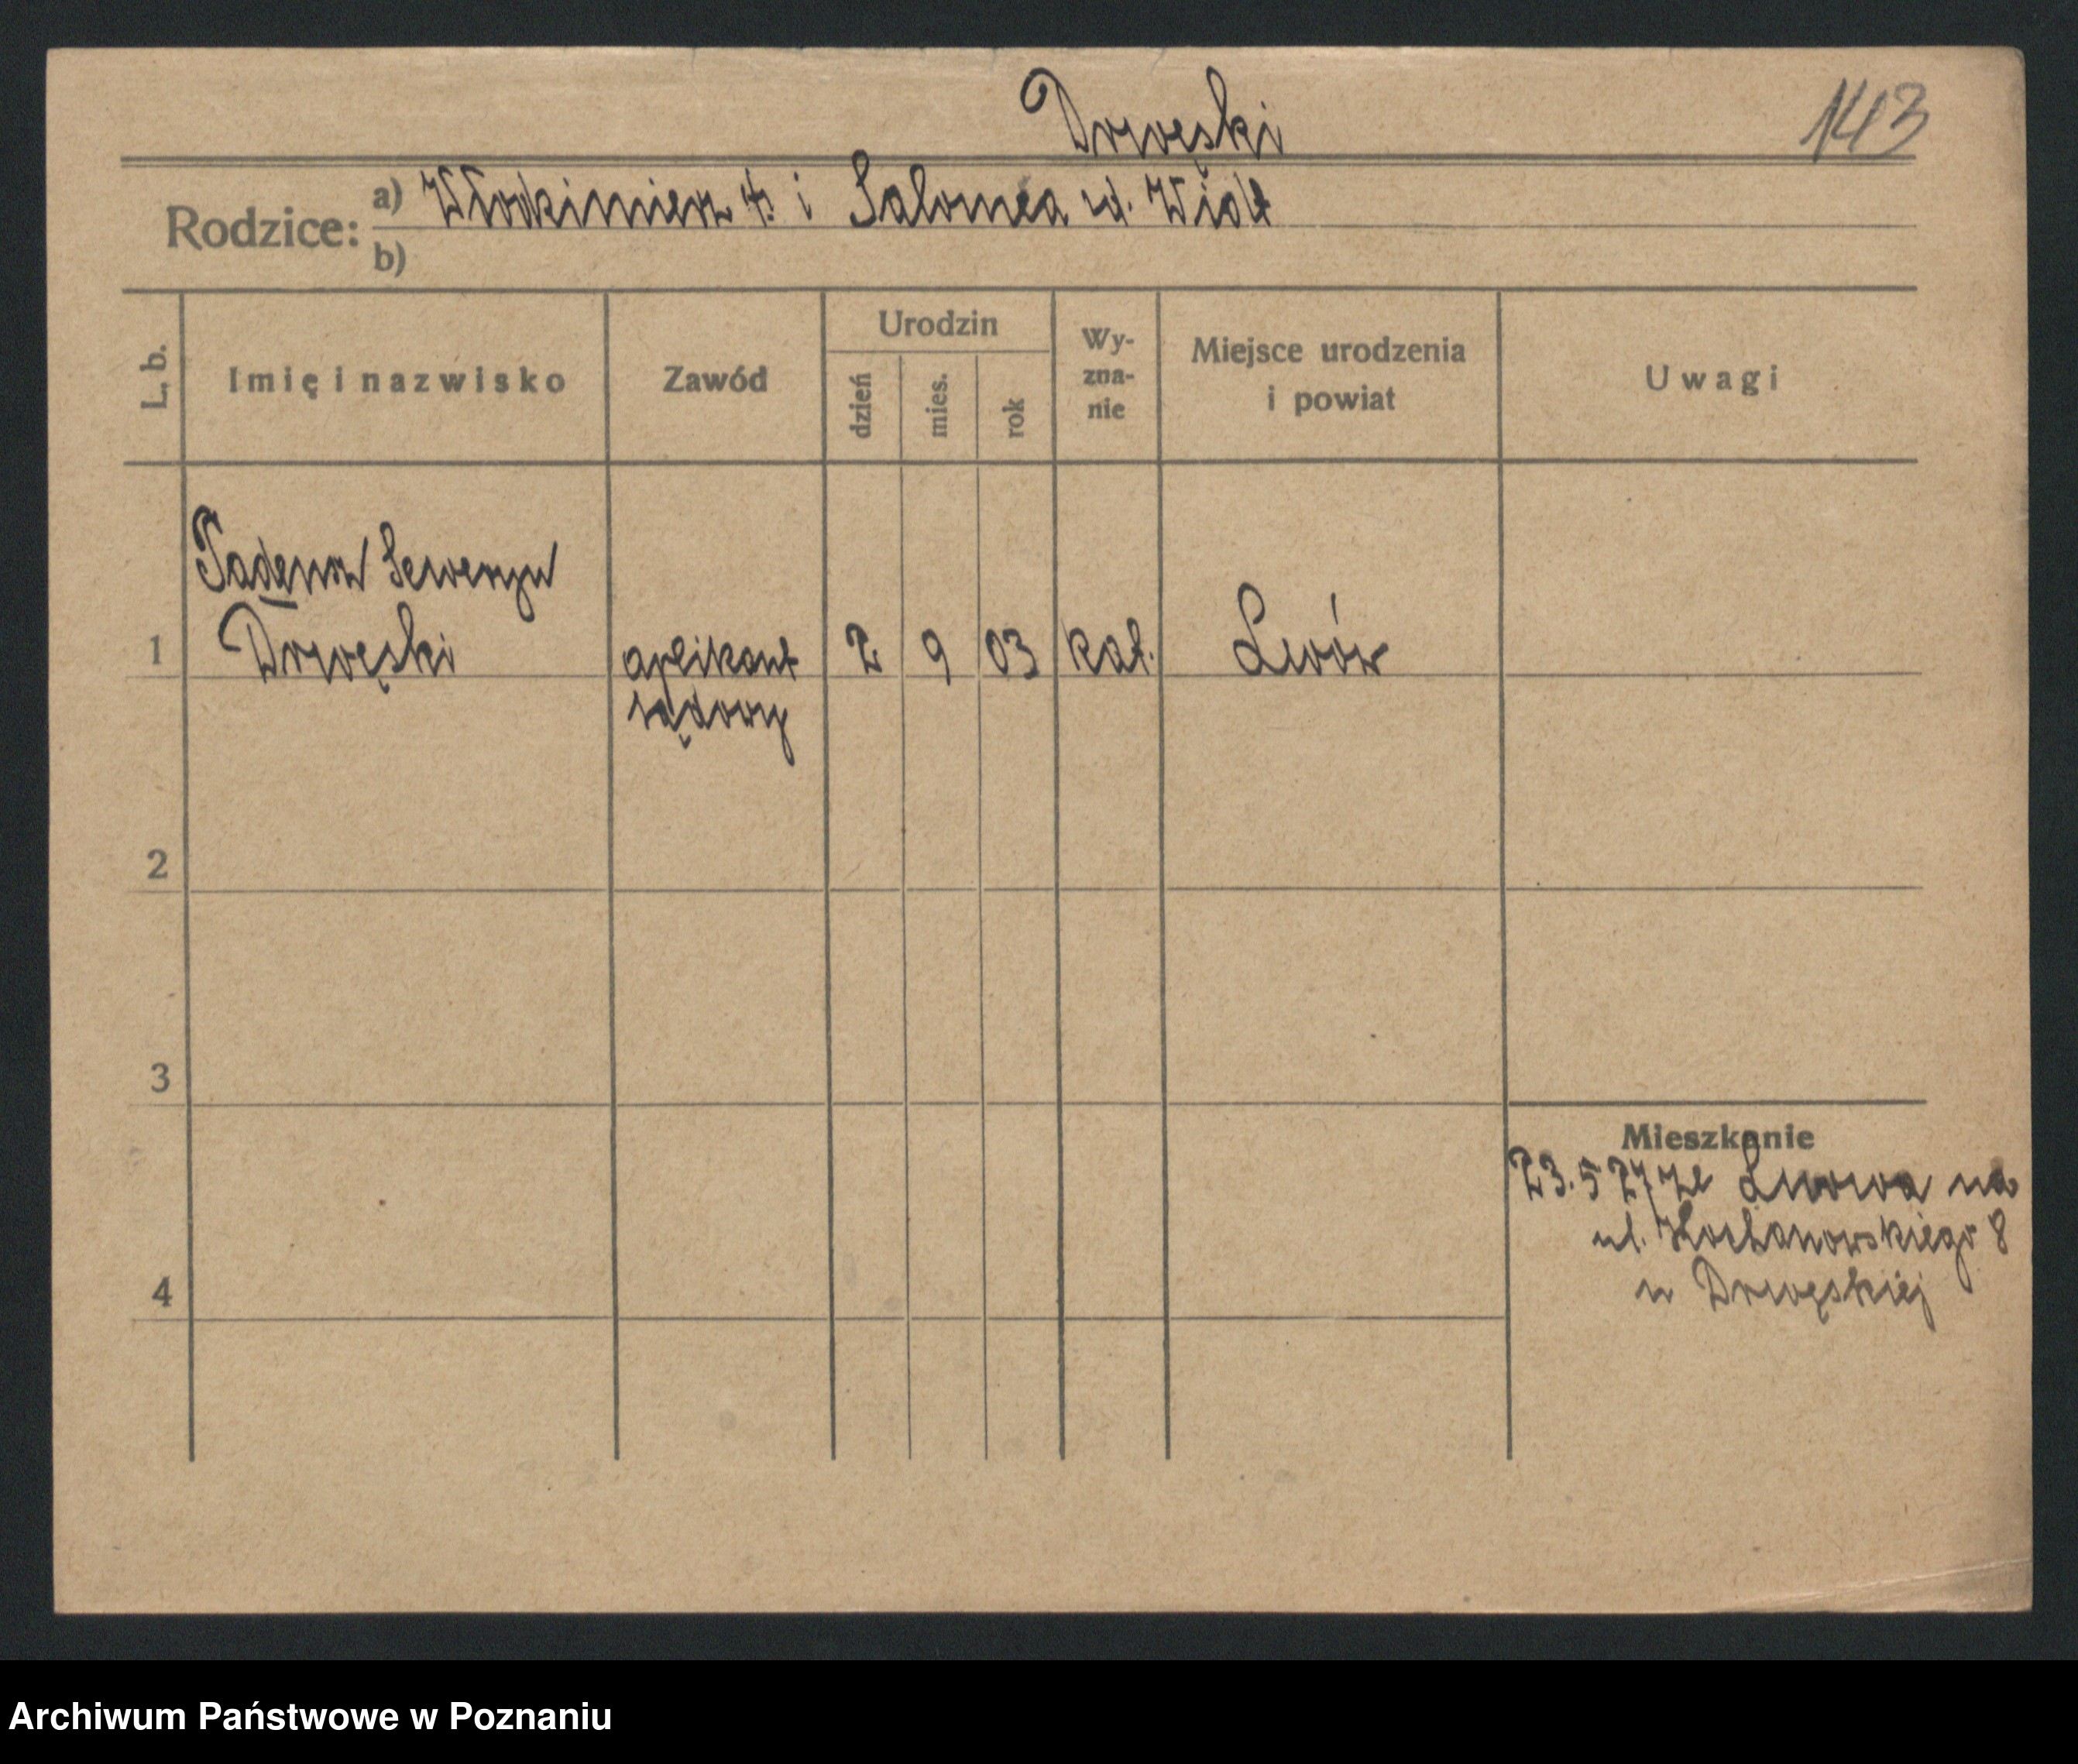 Drwęski
143
Rodzice: a) Włodzimierz i Salomea
b)
L. b.
Imię i nazwisko
Zawód
Urodzin
dzień
mies.
rok
Wy-
zna-
nie
Miejsce urodzenia
i powiat
Uwagi
Tadeusz Seweryn
1 Drwęski aplikant 2 9 03 kat. Lwów
sądowy
2
3
4
Mieszkanie
23.5 27 ze Lwowa na
ul. Kochanowskiego 8
u Drwęskiej
Archiwum Państwowe w Poznaniu